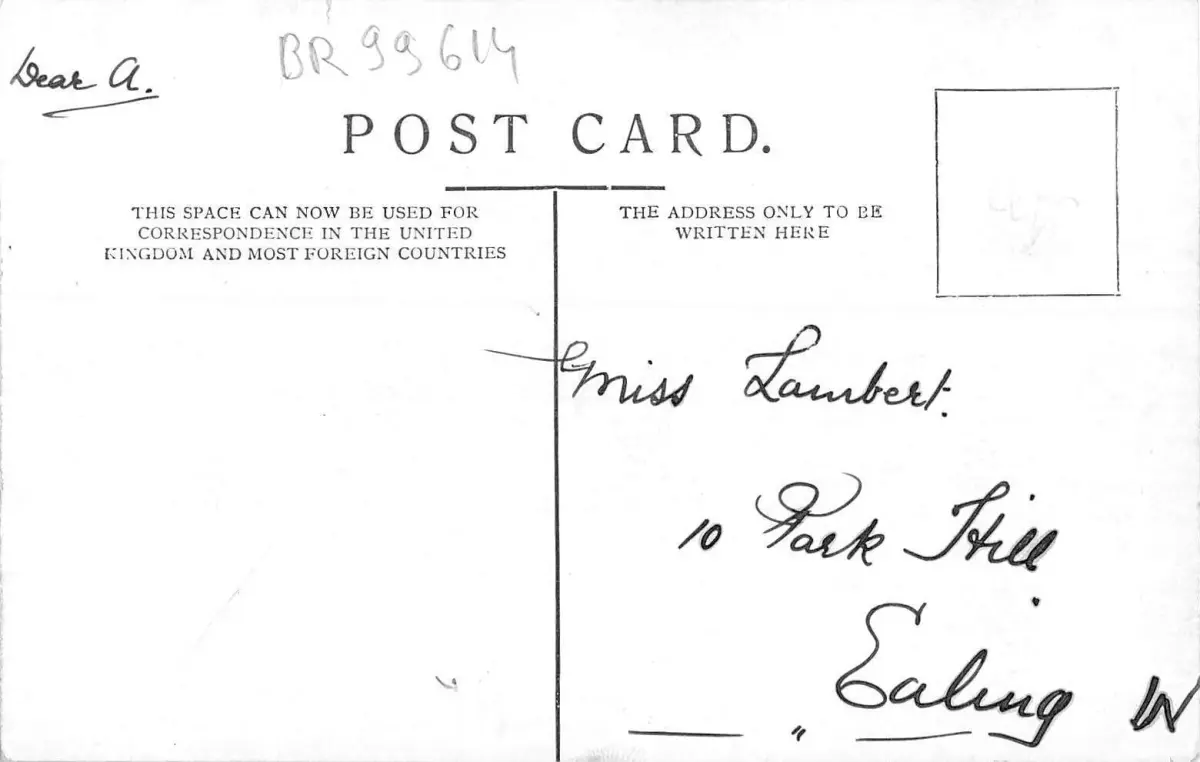 BR 99614
Dear A.
POST CARD.
THIS SPACE CAN NOW BE USED FOR
CORRESPONDENCE IN THE UNITED
KINGDOM AND MOST FOREIGN COUNTRIES
THE ADDRESS ONLY TO BE
WRITTEN HERE
Miss Lambert.
10 Park Hill
Ealing W